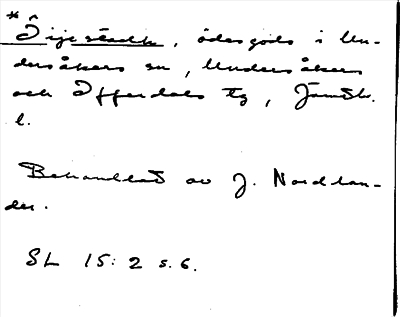 ödesgods i Un-
dersåkers sn, Undersåkers
och Offerdals tg, Jämtl.
l.
Behandlat av J. Nordlan-
der.
SL 15: 2 s. 6.